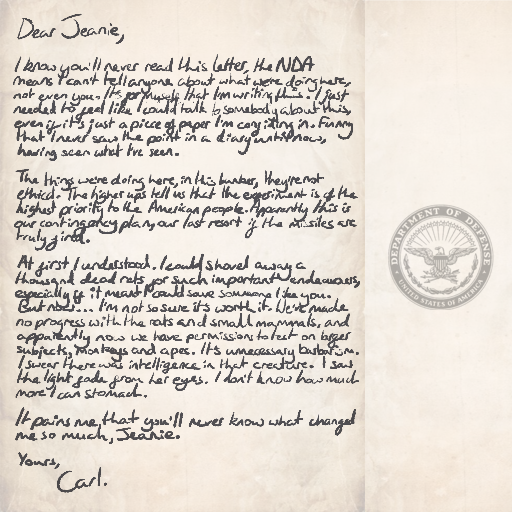 Dear Jeanie,
I know you'll never read this letter, the NDA
means I can't tell anyone about what we're doing here,
not even you. It's for myself that I'm writing this. I just
needed to feel like I could talk to somebody about this,
even if it's just a piece of paper I'm confiding in. Funny
that I never saw the point in a diary until now,
having seen what I've seen.
The things we're doing here, in this bunker, they're not
ethical. The higher ups tell us that the experiment is of the
highest priority to the American people. Apparently this is
our contingency plan, our last resort if the missiles are
truly fired.
At first I understood. I could shovel away a
thousand dead rats for such important endeavours,
especially if it meant I could save someone like you.
But now... I'm not so sure it's worth it. We've made
no progress with the rats and small mammals, and
apparently now we have permissions to test on bigger
subjects, monkeys and apes. It's unnecessary barbarism.
I swear there was intelligence in that creature. I saw
the light fade from her eyes. I don't know how much
more I can stomach.
It pains me that you'll never know what changed
me so much, Jeanie.
Yours,
Carl.
DEPARTMENT OF DEFENSE
UNITED STATES OF AMERICA